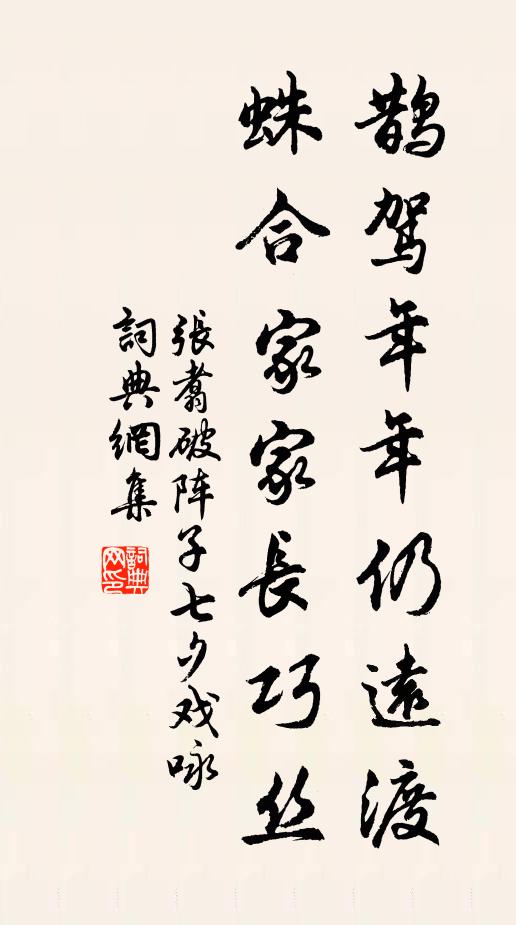 鹊驾年年仍遠渡
蛛合家家長巧丝
張翥破阵子七夕戏咏
詞典網集
詞典网印